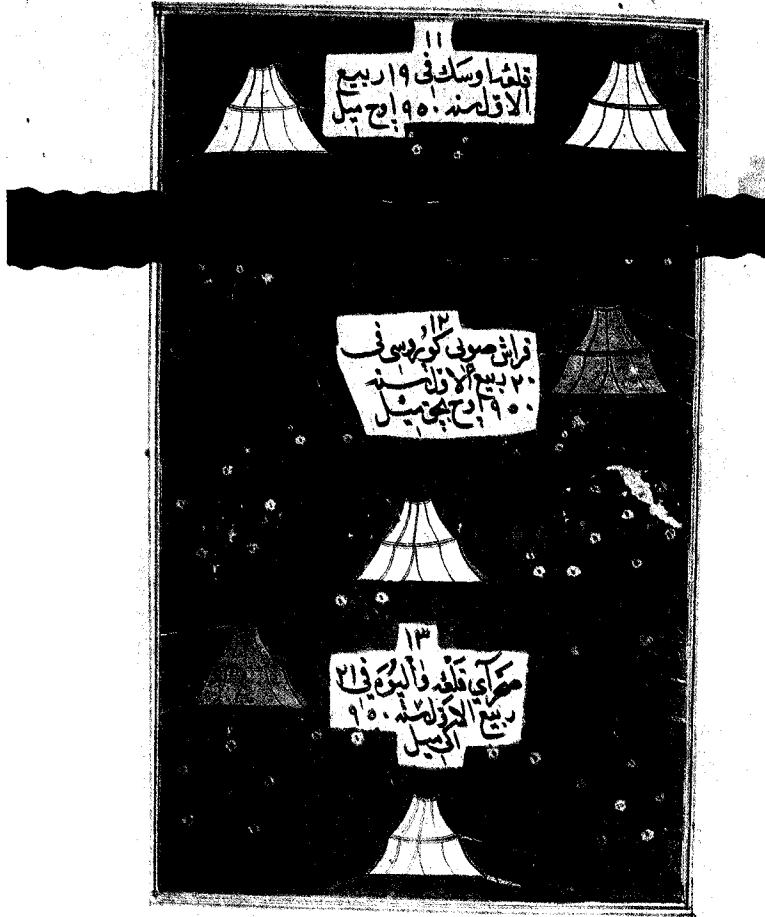 ١١
قلعهٔ اوسك فى ١٩ ربيع
الاول سنه ٩٥٠ اوچ ميل
١٢
فراش صويى كوپروسى فى
٢٠ ربيع الاول سنه
٩٥٠ اوچ بچق ميل
١٣
صحراى قلعهٔ والپوه فى ٢١
ربيع الاول سنه ٩٥٠
ايكى ميل